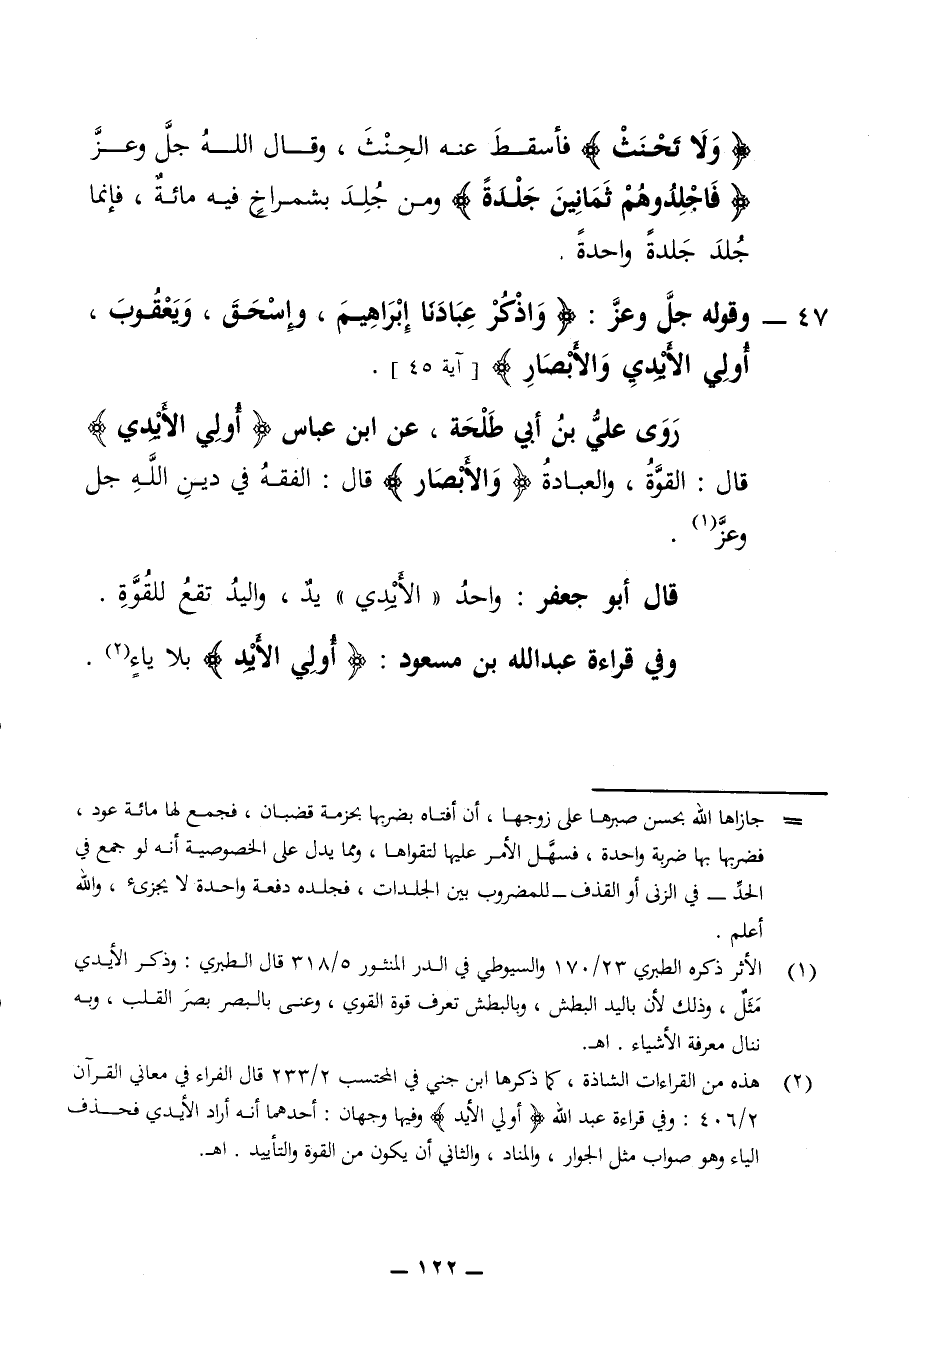 ﴿ وَلَا تَحْنَثْ ﴾ فأسقطَ عنه الحِنْثَ ، وقال اللهُ جلَّ وعزَّ
﴿ فَاجْلِدُوهُمْ ثَمَانِينَ جَلْدَةً ﴾ ومن جُلِدَ بشمراخٍ فيه مائةٌ ، فإنما
جُلدَ جَلدةً واحدةً .
٤٧ ــ وقوله جلَّ وعزَّ : ﴿ وَاذْكُرْ عِبَادَنَا إِبْرَاهِيمَ ، وإِسْحَقَ ، وَيَعْقُوبَ ،
أُولِي الأَيْدِي وَالأَبْصَارِ ﴾ [ آية ٤٥ ] .
رَوَى عليُّ بنُ أبي طَلْحَة ، عن ابن عباس ﴿ أُولِي الأَيْدِي ﴾
قال : القوَّةُ ، والعبادةُ ﴿ وَالأَبْصَار ﴾ قال : الفقهُ في دينِ اللَّهِ جل
وعزَّ(١) .
قال أبو جعفر : واحدُ « الأَيْدِي » يدٌ ، واليدُ تقعُ للقُوَّةِ .
وفي قراءة عبدالله بن مسعود : ﴿ أُولِي الأَيْد ﴾ بلا ياءٍ(٢) .
= جازاها الله بحسن صبرها على زوجها ، أن أفتاه بضربها بحزمة قضبان ، فجمع لها مائة عود ،
فضربها بها ضربة واحدة ، فسهَّل الأمر عليها لتقواها ، ومما يدل على الخصوصية أنه لو جمع في
الحدِّ ــ في الزنى أو القذف ــ للمضروب بين الجلدات ، فجلده دفعة واحدة لا يجزىء ، والله
أعلم .
(١) الأثر ذكره الطبري ١٧٠/٢٣ والسيوطي في الدر المنثور ٣١٨/٥ قال الطبري : وذكر الأيدي
مَثَلٌ ، وذلك لأن باليد البطش ، وبالبطش تعرف قوة القوي ، وعنى بالبصر بصرَ القلب ، وبه
ننال معرفة الأشياء . اهـ.
(٢) هذه من القراءات الشاذة ، كما ذكرها ابن جني في المحتسب ٢٣٣/٢ قال الفراء في معاني القرآن
٤٠٦/٢ : وفي قراءة عبد الله ﴿ أولي الأيد ﴾ وفيها وجهان : أحدهما أنه أراد الأيدي فحذف
الياء وهو صواب مثل الجوار ، والمناد ، والثاني أن يكون من القوة والتأييد . اهـ.
ــ ١٢٢ ــ